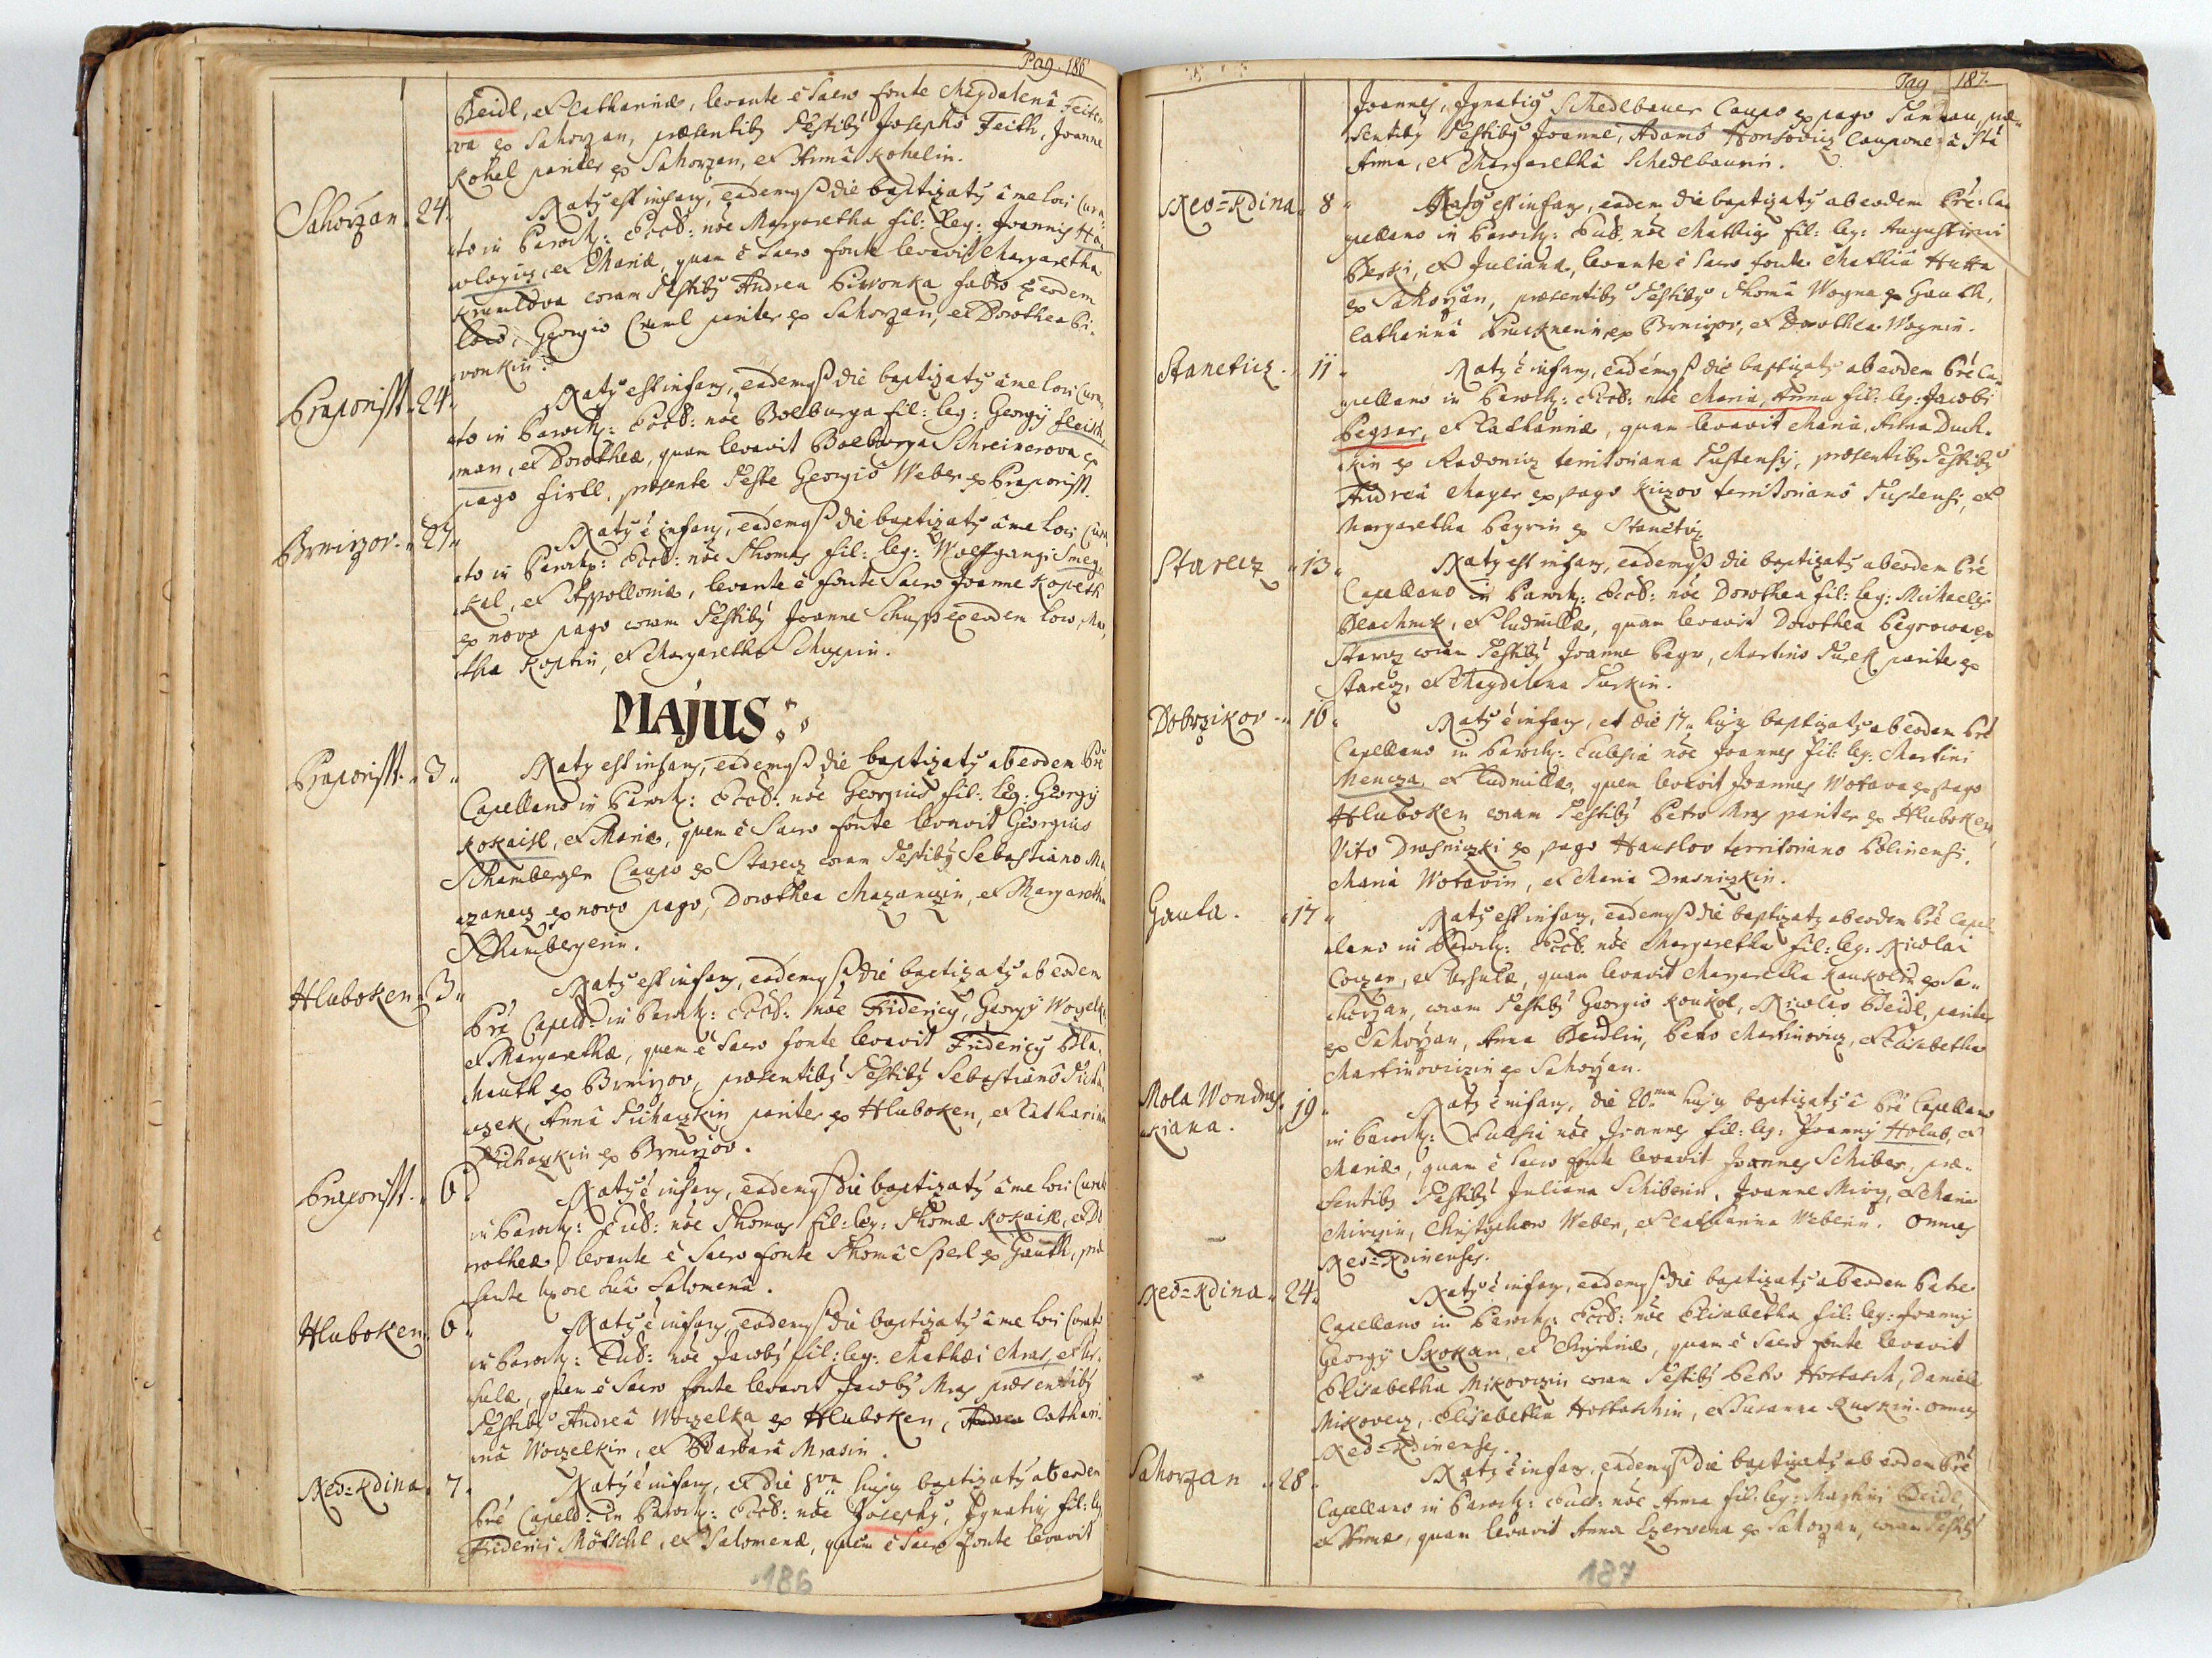 Pag. 186
Beidl, et Catharinæ, levante è Sacro fonte Magdalenâ Feite-
va ex Sahorzan, præsentibg Testibg Josepho Feith, Joanne
Kohel pariter ex Sahorzan, et Annâ Kohelin.
Sahorzan. 24. Natg est infans, eademqß die baptizatg â me loci Cura-
to in Paroch: Eccl: nõe Margaretha fil: leg: Joannis
et Mariæ, quam è Sacro fonte levavit Margaretha
Krumlova coram Testibg Andrea Piwonka fabro ex eodem
loco, Georgio Cruml pariter ex Sahorzan, et Dorothea Pi-
vonkin.
Praporisst. 24. Natg est infans, eademqß die baptizatg â me loci Cura-
to in Paroch: Eccl: nõe Bolburga fil: leg: Georgÿ Fleisch-
man, et Dorotheæ, quam levavit Bolburga Schreinerova ex
pago Firll, præsente Teste Georgio Weber ex Praporisst.
Brnirzov. 27. Natg è infans, eademqß die baptizatg â me loci Cura-
to in Paroch: Eccl: nõe Thomas fil: leg: Wolfgangi Smey-
kal, et Appolloniæ, levante è fonte Sacro Joanne Kopeth
ex novo pago coram Testibg Joanne Schupp ex eodem loco, Mar-
tha Koptin, et Margaretha Schuppin.
MAJUS
Praporisst. 3. Natg est infans, eademqß die baptizatg ab eodem Prê
Capellano in Paroch: Eccl: nõe Georgius fil: leg: Georgÿ
Kokaisl, et Mariæ, quem è Sacro fonte levavit Georgius
Schamberger Caupo ex Starecz coram Testibg Sebastiano Ma-
zanecz ex novo pago, Dorothea Mazanczin, et Margaretha
Schambergerin.
Hluboken. 3. Natg est infans, eademqß die baptizatg ab eodem
Prê Capell: in Paroch: Eccl: nõe Fridericg, Georgÿ
et Margarethæ, quem è Sacro fonte levavit Fridericg
ex Brnirzov, præsentibg Testibg Sebastianô
Annâ Tichaczkin pariter ex Hluboken, et Catharina
Tichaczkin ex Brnirzov.
Praporisst. 6. Natg è infans, eademqß die baptizatg â me loci Curato
in Paroch: Eccl: nõe Thomas fil: leg: Thomæ Kokaisl, et Do-
rotheæ, levante è Sacro fonte Thomâ Sperl ex Gauth, præ-
sente uxore suâ Salomenâ.
Hluboken. 6. Natg è infans, eademqß die baptizatg â me loci Curato
in Paroch: Eccl: nõe Jacobg fil: leg: Mathæi Mras, et Ur-
sulæ, quem è Sacro fonte levavit Jacobg Mras præsentibg
Testibg Andreâ Woczelka ex Hluboken, Andrea Cathari-
nâ Woczelkin, et Barbarâ Mrasin.
Neo=Kdina. 7. Natg è infans, et die 8va hujg baptizatg ab eodem
Prê Capell: in Paroch: Eccl: nõe Josephg, Ignatig fil: leg:
Friderici Mötschl, et Salomenæ, quem è Sacro fonte levavit
186
Pag. 187.
Joannes, Ignatig Schedlbauer Caupo ex pago præ-
sentibg Testibg Joanne, Adamo Caupone â Stâ
Anna, et Margarethâ Schedlbaurin.
Neo=Kdina. 8. Natg est infans, eadem die baptizatg ab eodem Prê: Ca-
pellano in Paroch: Eccl: nõe Mathias fil: leg: Augustini
et Julianæ, levante è Sacro fonte Mathiâ Hutta
ex Sahorzan, præsentibg Testibg Thomâ Wogna ex Gauth,
Catharinâ Prucknerin ex Brnirzov, et Dorothea Wognin.
Staneticz. 11. Natg è infans, eademqß die baptizatg ab eodem Prê Ca-
pellano in Paroch: Eccl: nõe Maria, Anna fil: leg: Jacobi
Pegsar, et Catharinæ, quam levavit Maria, Anna Duch-
kin ex Radonicz territoriana Tustensi, præsentibg Testibg
Andreâ Mayer ex pago territoriano Tustensi, et
Margaretha Pegrin ex Staneticz
Starecz. 13. Natg est infans, eademqß die baptizatg ab eodem Prê
Capellano in Paroch: Eccl: nõe Dorothea fil: leg: Michaelis
et Ludmillæ, quam levavit Dorothea Pegrowa ex
Starecz coram Testibg Joanne Pegr, Martino Turek pariter ex
Starecz, et Magdalena Turkin.
Dobrzikov. 16. Natg è infans, et die 17. hujg baptizatg ab eodem Prê
Capellano in Paroch: Ecclesiâ nõe Joannes fil: leg: Martini
Mencza, et Ludmillæ, quem levavit Joannes Wotava ex pago
Hluboken coram Testibg Petro Mras pariter ex Hluboken,
Vito Drasniczki ex pago Hauslov territoriano Polinensi,
Mariâ Wotavin, et Maria Drasniczkin.
Gauta. 17. Natg est infans, eademqß die baptizatg ab eodem Prê Capel-
lano in Paroch: Eccl: nõe Margaretha fil: leg: Nicolai
et Ursulæ, quam levavit Margaretha Kaukolin ex Sa-
horzan, coram Testibg Georgio Koukol, Nicolao Beidl, pariter
ex Sahorzan, Anna Beidlin, Petro Martinovicz, et Elisabetha
Martinoviczin ex Sahorzan.
Mola Wondras- 19. Natg è infans, die 20.ma hujg baptizatg â Prê Capellano
kiana. in Paroch: Ecclesiâ nõe Joannes fil: leg: Joannis Holub, et
Mariæ, quem è Sacro fonte levavit Joannes Schiber, præ-
sentibg Testibg Juliana Schiberin, Joanne et Maria
Christophoro Weber, et Catharina Weberin. Omnes
Neo=Kdinenses.
Neo=Kdina. 24. Natg è infans, eademqß die baptizatg ab eodem Patre
Capellano in Paroch: Eccl: nõe Elisabetha fil: leg: Joannis
Georgÿ Skokan, et Christinæ, quam è Sacro fonte levavit
Elisabetha Mikoviczin coram Testibg Petro Hostasch, Daniele
Mikovecz, Elisabetha Hostaschin, et Susanna Ruskin. omnes
Neo=Kdinenses.
Sahorzan. 28. Natg è infans, eademqß die baptizatg ab eodem Prê
Capellano in Paroch: Eccl: nõe Anna fil: leg: Martini Beidl,
et Annæ, quam levavit Anna Ezerovna ex Sahorzan, coram Testibg
187